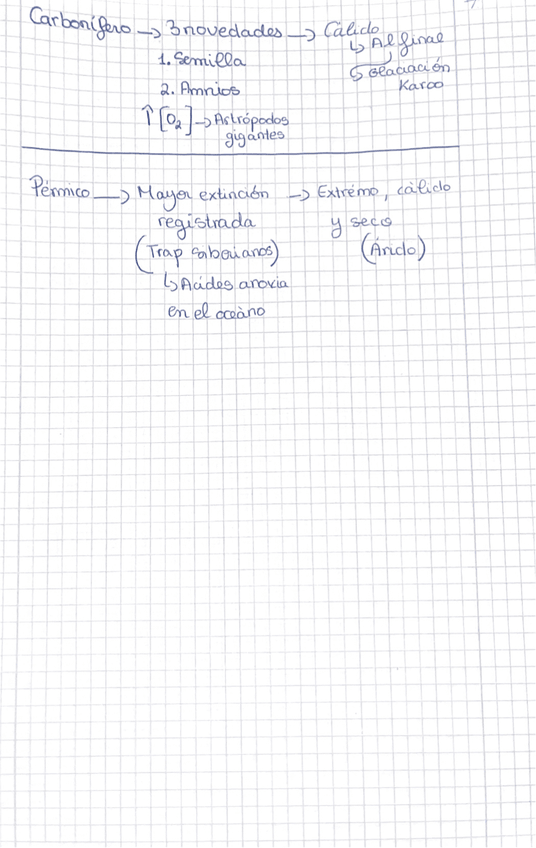 Carbonífero → 3 novedades → Cálido
↳ Al final
1. Semilla
↳ Glaciación
Karoo
2. Amnios
↑ [O₂] → Artrópodos
gigantes
Pérmico → Mayor extinción → Extrémo, cálido
registrada y seco
(Trap siberianos) (Árido)
↳ Acides anoxia
en el oceàno